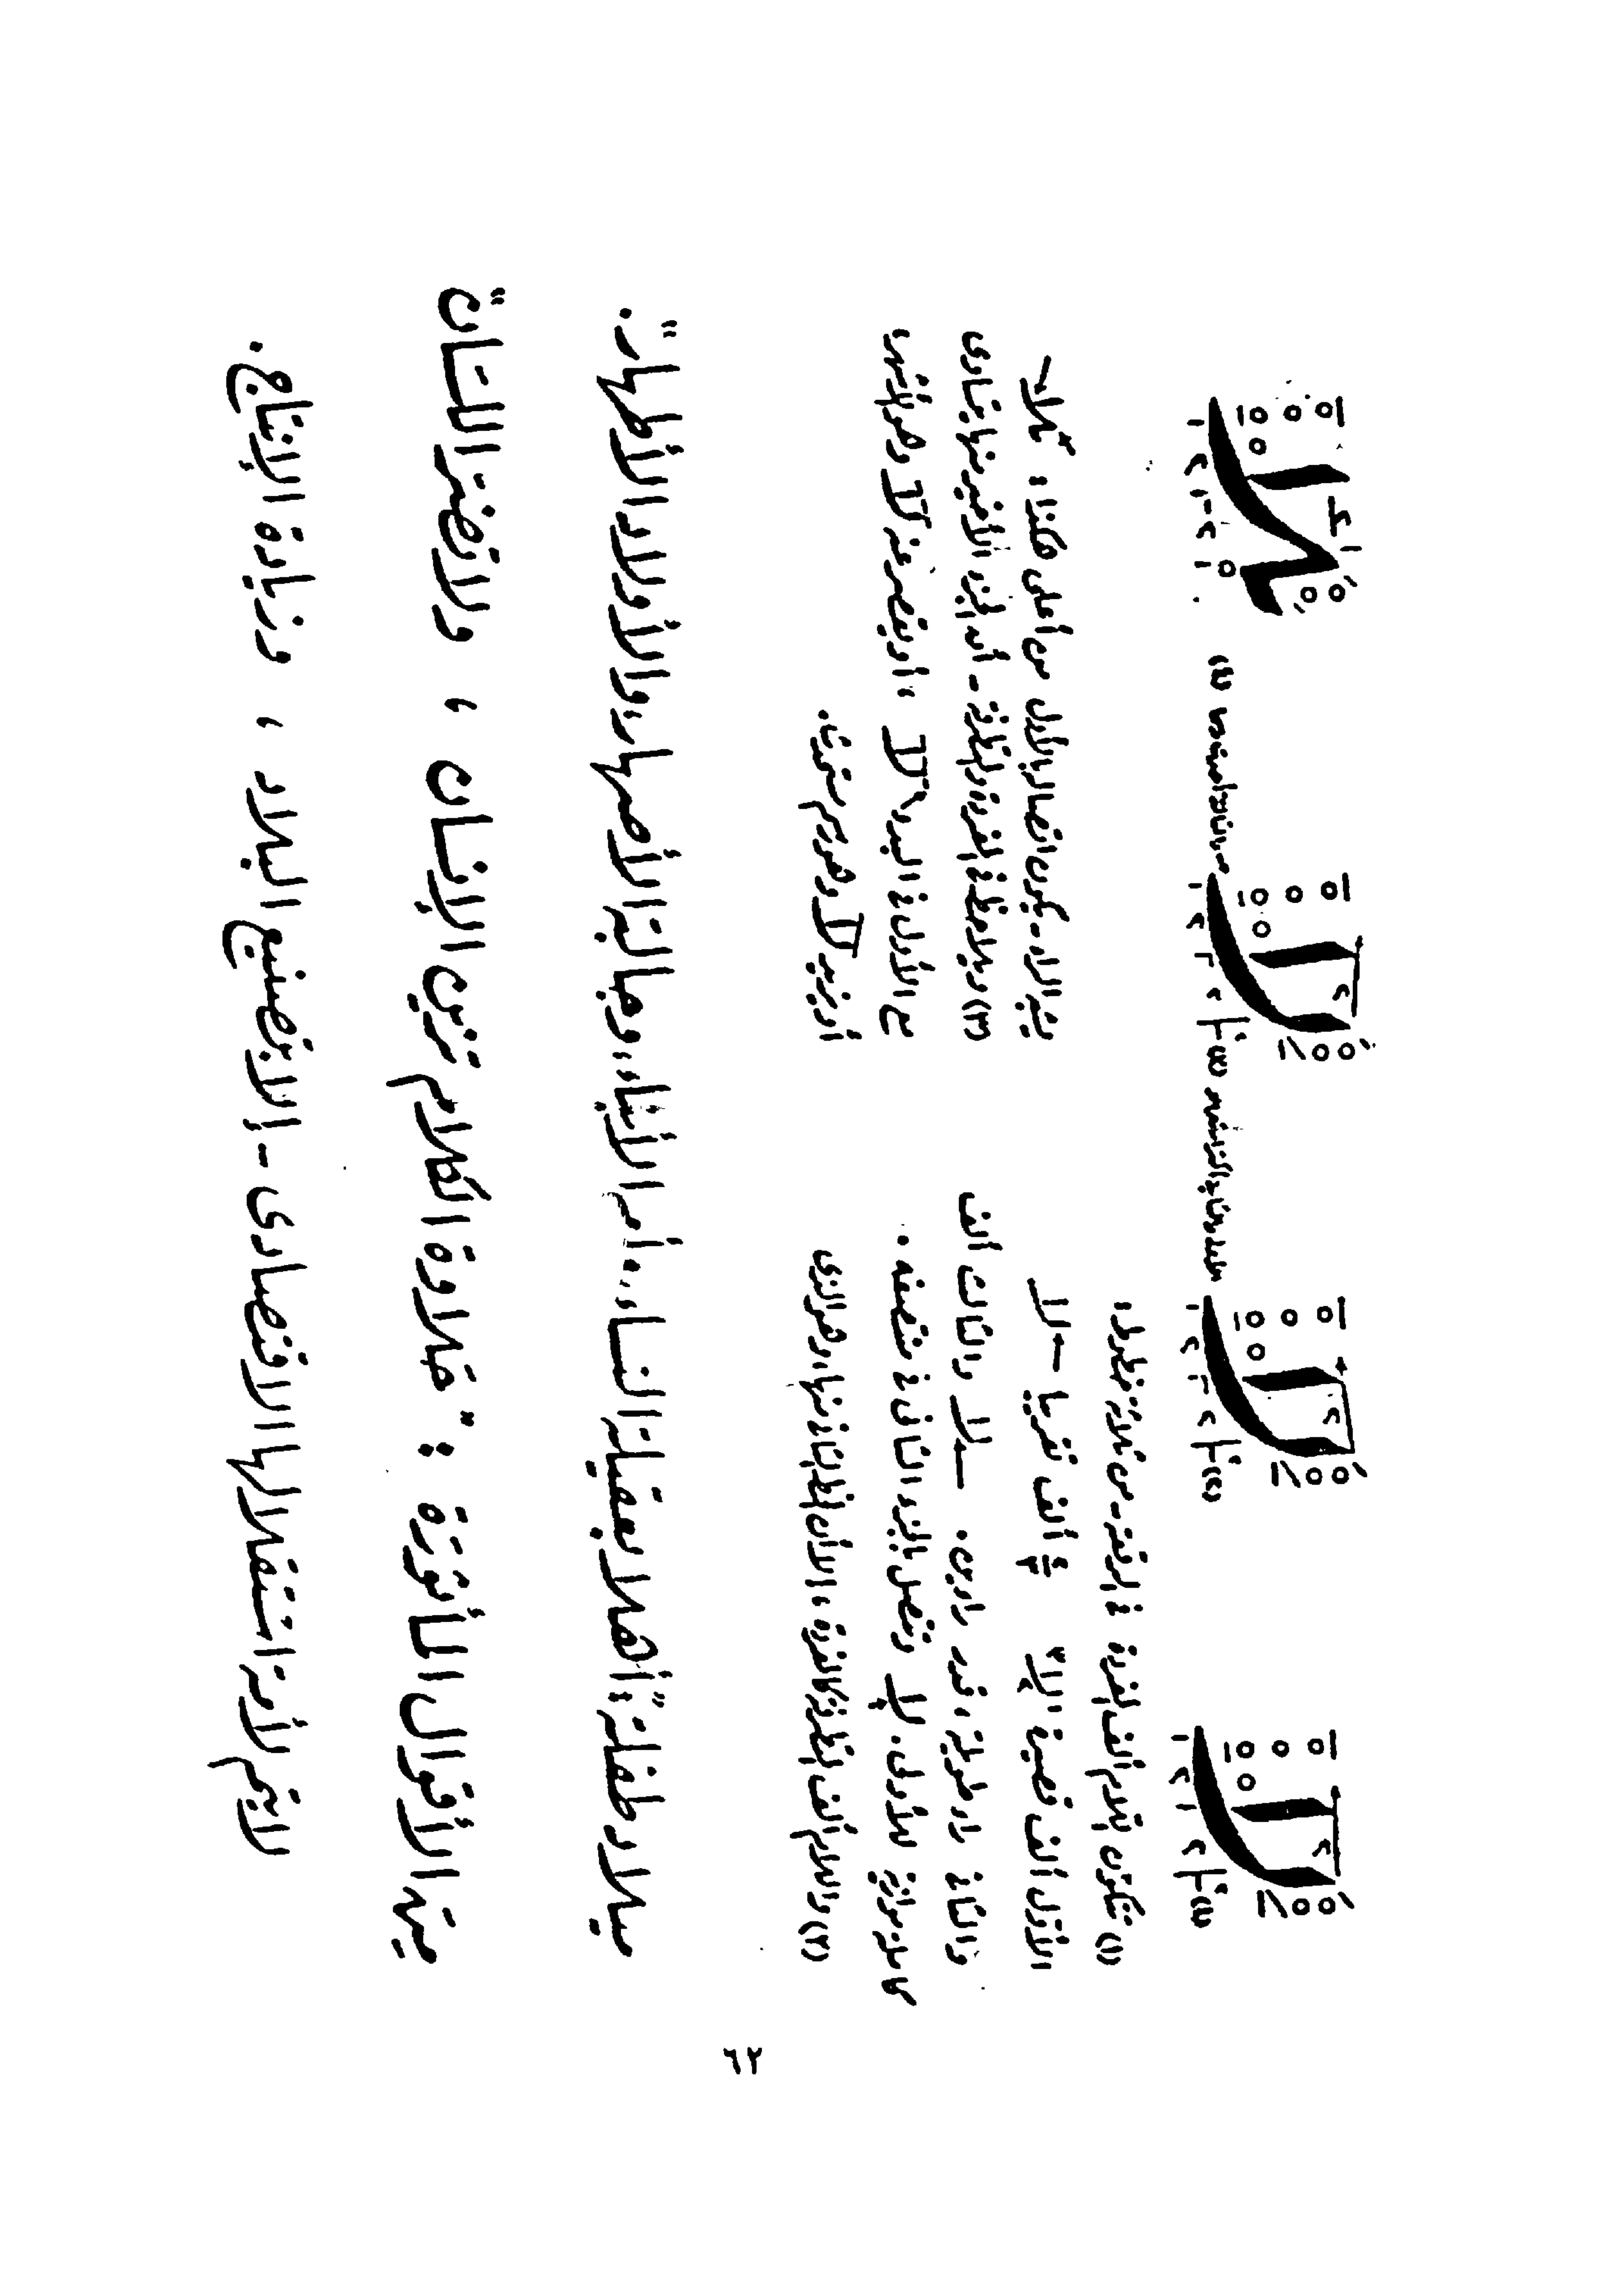 (١) تتكون لام ألف المفردة فى الرقعة - من ثلاثة خطوط،
الأول ألف قصيرة إلا ألف تقريبا
والثانى راء طويلة، قدر راءين. والثالث ألف
كاملة موازية للأولى. لا وتتصل بالجزء الثانى فى منتصفه.
(٢) واللام ألف المتطرفة كالمفردة، إلا أن الخط الثانى منها، وهو الذى
يشبه الراء - يكون اتصاله بالأول من أعلى هكذا:
(٣) ويلاحظ فى المفردة والمتطرفة - أن الجزء الأخير منها يتساوى
مع الأول فى البدء لا ، أو يقصر عنه لا وهو
أو يزيد لا وهو
ميلاد طفلة: "أهلا بعقيلة النساء، وأم الأبناء، وجالبة الأصهار، والأولاد الأطهار".
من الأقوال المأثورة : "حلاوة الكلام تزين الإنسان ، ولا تضر اللسان"
لا يتم لأمة استقلالها الاقتصادى - إلا بتصنيع البلاد ، وزيادة الإنتاج.
٦٢